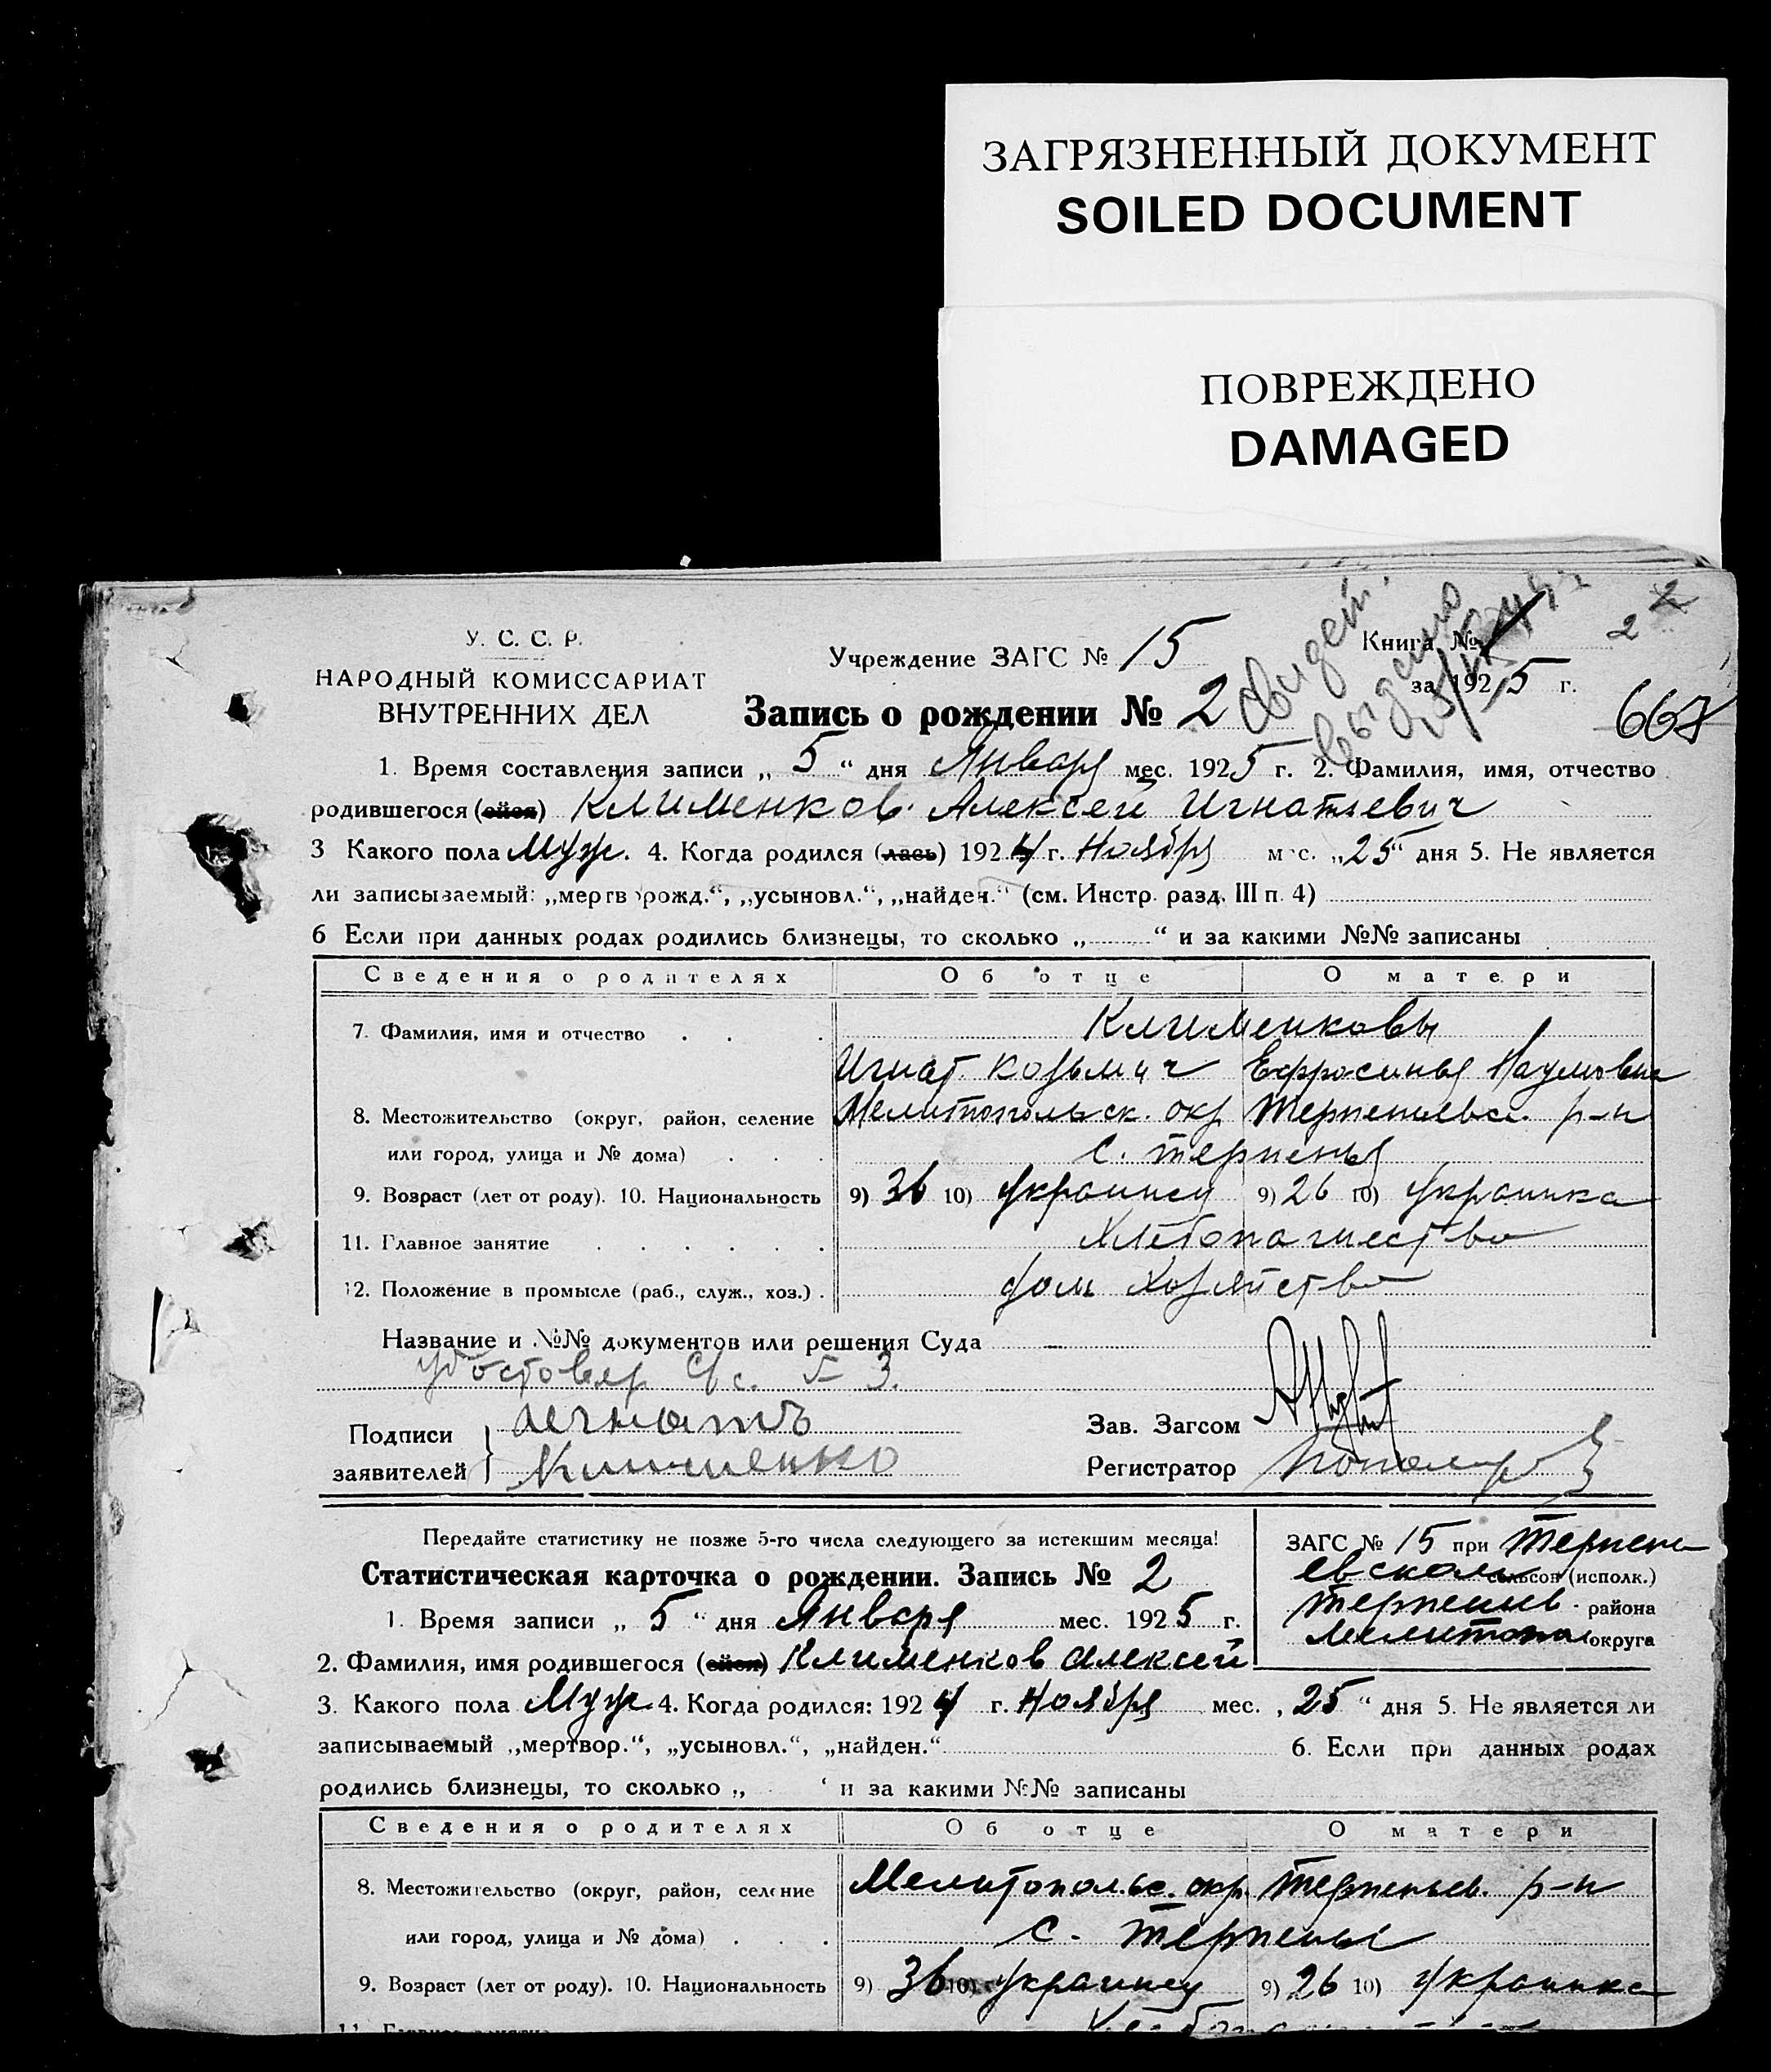 ЗАГРЯЗНЕННЫЙ ДОКУМЕНТ
SOILED DOCUMENT
ПОВРЕЖДЕНО
DAMAGED
У. С. С. Р.
НАРОДНЫЙ КОМИССАРИАТ
ВНУТРЕННИХ ДЕЛ
Учреждение ЗАГС № 15
Книга № 1
2 2
за 1925 г.
Запись о рождении № 2
Свидет.
выдано
667
1. Время составления записи „ 5 “ дня Января мес. 1925 г. 2. Фамилия, имя, отчество
родившегося (ейся) Клименков Алексей Игнатьевич
3 Какого пола Муж. 4. Когда родился (лась) 1924 г. Ноября мес. „25“ дня 5. Не является
ли записываемый: „мертворожд.“, „усыновл.“, „найден.“ (см. Инстр. разд. III п. 4)
6 Если при данных родах родились близнецы, то сколько „ “ и за какими №№ записаны
Сведения о родителях Об отце О матери
7. Фамилия, имя и отчество Клименковы
Игнат Козьмич Ефросинья Наумовна
8. Местожительство (округ, район, селение Мелитопольск. окр Терпеньевс. р-н
или город, улица и № дома) с. Терпенья
9. Возраст (лет от роду). 10. Национальность 9) 36 10) Украинец 9) 26 10) Украинка
11. Главное занятие Хлебопашество
12. Положение в промысле (раб., служ., хоз.) дом хозяйство
Название и №№ документов или решения Суда —
удостовер с/с. № 3.
Подписи Игнатъ
заявителей Клименко
Зав. Загсом
Регистратор
Передайте статистику не позже 5-го числа следующего за истекшим месяца!
Статистическая карточка о рождении. Запись № 2
ЗАГС № 15 при Терпень
евском сельсов (исполк.)
Терпеньев. района
Мелитопол округа
1. Время записи „ 5 “ дня Января мес. 1925 г.
2. Фамилия, имя родившегося (ейся) Клименков Алексей
3. Какого пола Муж 4. Когда родился: 1924 г. Ноября мес. „ 25 “ дня 5. Не является ли
записываемый „мертвор.“, „усыновл.“, „найден.“ 6. Если при данных родах
родились близнецы, то сколько „ “ и за какими №№ записаны
Сведения о родителях Об отце О матери
8. Местожительство (округ, район, селение Мелитопольс. окр. Терпеньев. р-н
или город, улица и № дома) с. Терпенье
9. Возраст (лет от роду). 10. Национальность 9) 36 10) Украинец 9) 26 10) Украинка